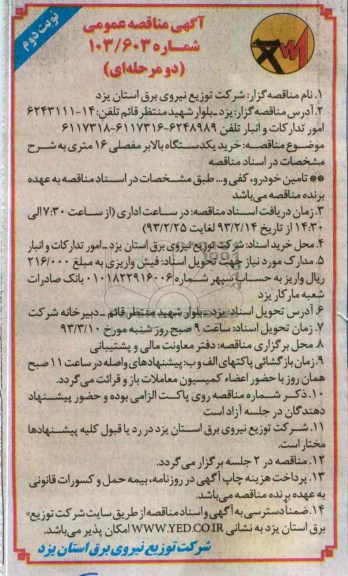 نوبت دوم
آگهی مناقصه عمومی
شماره ۱۰۳/۶۰۳
(دو مرحله‌ای)
۱. نام مناقصه گزار: شرکت توزیع نیروی برق استان یزد
۲. آدرس مناقصه گزار: یزد_بلوار شهید منتظر قائم تلفن: ۱۴-۶۲۴۳۱۱۱
امور تدارکات و انبار تلفن ۶۲۴۸۹۸۹-۶۱۱۷۳۱۶-۶۱۱۷۳۱۸
موضوع مناقصه: خرید یکدستگاه بالابر مفصلی ۱۶ متری به شرح
مشخصات در اسناد مناقصه
** تامین خودرو، کفی و... طبق مشخصات در اسناد مناقصه به عهده
برنده مناقصه می‌باشد
۳. زمان دریافت اسناد مناقصه: در ساعت اداری (از ساعت ۷:۳۰ الی
۱۴:۳۰ از تاریخ ۹۳/۲/۱۴ لغایت ۹۳/۲/۲۵)
۴. محل خرید اسناد: شرکت توزیع نیروی برق استان یزد _ امور تدارکات و انبار
۵. مدارک مورد نیاز جهت تحویل اسناد: فیش واریزی به مبلغ ۲۱۶/۰۰۰
ریال واریز به حساب سپهر شماره ۰۱۰۱۸۲۲۹۱۶۰۰۶ بانک صادرات
شعبه مارکار یزد
۶. آدرس تحویل اسناد: یزد_بلوار شهید منتظر قائم _ دبیرخانه شرکت
۷. زمان تحویل اسناد: ساعت ۹ صبح روز شنبه مورخ ۹۳/۳/۱۰
۸. محل برگزاری مناقصه: دفتر معاونت مالی و پشتیبانی
۹. زمان بازگشائی پاکتهای الف و ب: پیشنهادهای واصله در ساعت ۱۱ صبح
همان روز با حضور اعضاء کمیسیون معاملات باز و قرائت می‌گردد.
۱۰. ذکر شماره مناقصه روی پاکت الزامی بوده و حضور پیشنهاد
دهندگان در جلسه آزاد است
۱۱. شرکت توزیع نیروی برق استان یزد در رد یا قبول کلیه پیشنهادها
مختار است.
۱۲. مناقصه در ۲ جلسه برگزار می‌گردد.
۱۳. پرداخت هزینه چاپ آگهی در روزنامه، بیمه حمل و کسورات قانونی
به عهده برنده مناقصه می‌باشد.
۱۴. ضمناً دسترسی به آگهی و اسناد مناقصه از طریق سایت شرکت توزیع
برق استان یزد به نشانی WWW.YED.CO.IR امکان پذیر می‌باشد.
شرکت توزیع نیروی برق استان یزد